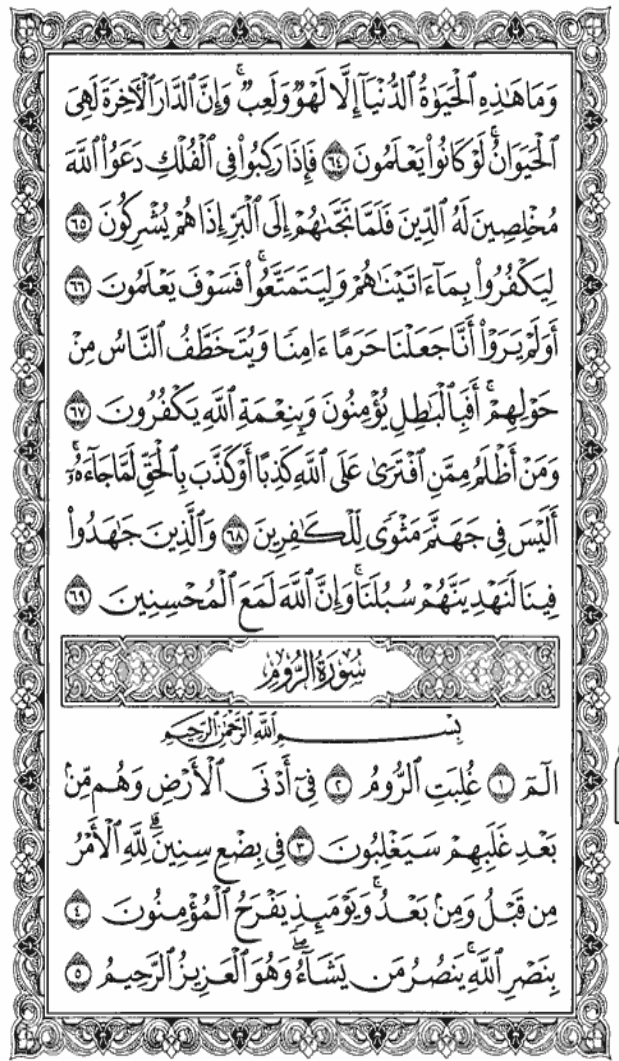 وَمَا هَٰذِهِ ٱلْحَيَوٰةُ ٱلدُّنْيَآ إِلَّا لَهْوٌ وَلَعِبٌ ۚ وَإِنَّ ٱلدَّارَ ٱلْـَٔاخِرَةَ لَهِىَ
ٱلْحَيَوَانُ ۚ لَوْ كَانُوا۟ يَعْلَمُونَ ٦٤ فَإِذَا رَكِبُوا۟ فِى ٱلْفُلْكِ دَعَوُا۟ ٱللَّهَ
مُخْلِصِينَ لَهُ ٱلدِّينَ فَلَمَّا نَجَّىٰهُمْ إِلَى ٱلْبَرِّ إِذَا هُمْ يُشْرِكُونَ ٦٥
لِيَكْفُرُوا۟ بِمَآ ءَاتَيْنَٰهُمْ وَلِيَتَمَتَّعُوا۟ ۚ فَسَوْفَ يَعْلَمُونَ ٦٦
أَوَلَمْ يَرَوْا۟ أَنَّا جَعَلْنَا حَرَمًا ءَامِنًا وَيُتَخَطَّفُ ٱلنَّاسُ مِنْ
حَوْلِهِمْ ۚ أَفَبِٱلْبَٰطِلِ يُؤْمِنُونَ وَبِنِعْمَةِ ٱللَّهِ يَكْفُرُونَ ٦٧
وَمَنْ أَظْلَمُ مِمَّنِ ٱفْتَرَىٰ عَلَى ٱللَّهِ كَذِبًا أَوْ كَذَّبَ بِٱلْحَقِّ لَمَّا جَآءَهُۥٓ ۚ
أَلَيْسَ فِى جَهَنَّمَ مَثْوًى لِّلْكَٰفِرِينَ ٦٨ وَٱلَّذِينَ جَٰهَدُوا۟
فِينَا لَنَهْدِيَنَّهُمْ سُبُلَنَا ۚ وَإِنَّ ٱللَّهَ لَمَعَ ٱلْمُحْسِنِينَ ٦٩
سُورَةُ الرُّومِ
بِسْمِ ٱللَّهِ ٱلرَّحْمَٰنِ ٱلرَّحِيمِ
الٓمٓ ١ غُلِبَتِ ٱلرُّومُ ٢ فِىٓ أَدْنَى ٱلْأَرْضِ وَهُم مِّنۢ
بَعْدِ غَلَبِهِمْ سَيَغْلِبُونَ ٣ فِى بِضْعِ سِنِينَ ۗ لِلَّهِ ٱلْأَمْرُ
مِن قَبْلُ وَمِنۢ بَعْدُ ۚ وَيَوْمَئِذٍ يَفْرَحُ ٱلْمُؤْمِنُونَ ٤
بِنَصْرِ ٱللَّهِ ۚ يَنصُرُ مَن يَشَآءُ ۖ وَهُوَ ٱلْعَزِيزُ ٱلرَّحِيمُ ٥